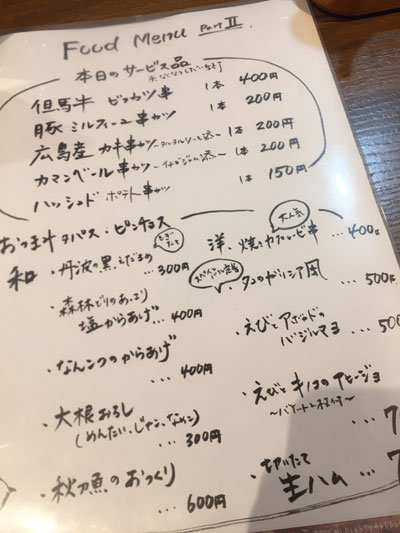 Food Menu Part II
本日のサービス品
※なくなりしだい終了
但馬牛 ビフカツ串 1本 400円
豚ミルフィーユ串カツ 1本 200円
広島産カキ串カツ 〜タルタルソース添〜 1本 200円
カマンベール串カツ 1本 200円
ハッシュドポテト串カツ 1本 150円
おつまみタパス・ピンチョス
和
・丹波の黒えだまめ ... 300円
・森林どりのあっさり
塩からあげ ... 400円
・なんこつのからあげ
... 400円
・大根おろし
(めんたい、じゃこ、なめこ)
... 300円
・秋刀魚のおつくり
... 600円
大人気
洋、
... 400円
タコのガリシア風
... 500円
・えびとアボカドの
バジルマヨ ... 500
・えびとキノコのアヒージョ
〜バゲット2枚付〜
... 7
・切りたて
生ハム ... 7